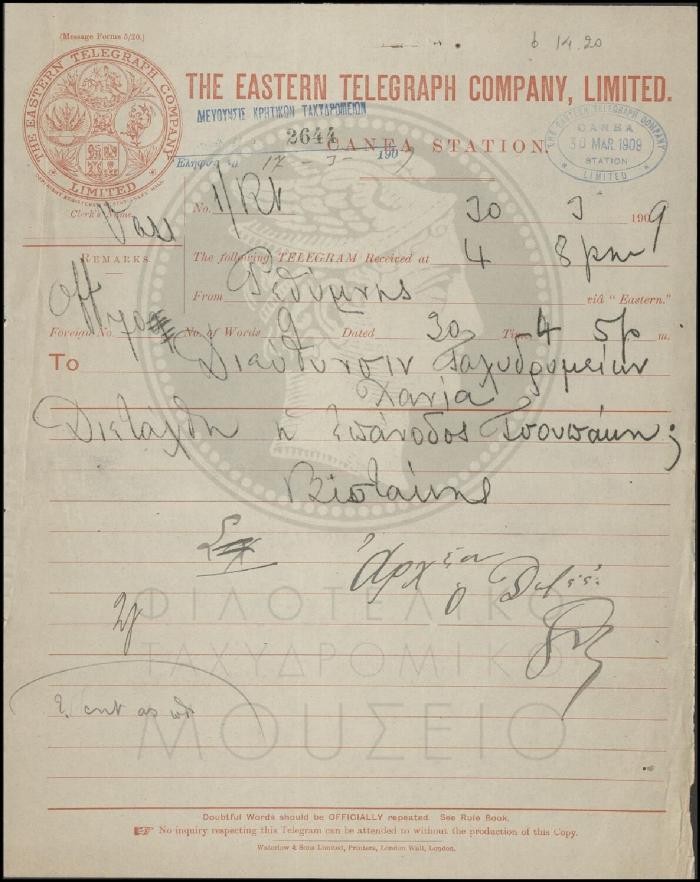 (Message Forms 5/20.)
6 14.20
THE EASTERN TELEGRAPH COMPANY
LIMITED
THE EASTERN TELEGRAPH COMPANY, LIMITED.
ΔΙΕΥΘΥΝΣΙΣ ΚΡΗΤΙΚΩΝ ΤΑΧΥΔΡΟΜΕΙΩΝ
2644
CANEA STATION.
Ελήφθη τη 17-3-1909
THE EASTERN TELEGRAPH COMPANY
CANEA
30 MAR 1909
STATION
LIMITED
Clerk's Name
No. 30 3 1909
REMARKS.
The following TELEGRAM Received at 4 8 pm
From Ρεθύμνης viâ "Eastern."
Off
Foreign No. No. of Words 9 Dated 30 4 5 p m.
To Διεύθυνσιν Ταχυδρομείων
Χανία
Διετάχθη η επάνοδος Τσουπάκη;
Βιστάκης
ΦΙΛΟΤΕΛΙΚΟ
ΤΑΧΥΔΡΟΜΙΚΟ
ΜΟΥΣΕΙΟ
Doubtful Words should be OFFICIALLY repeated. See Rule Book.
No inquiry respecting this Telegram can be attended to without the production of this Copy.
Waterlow & Sons Limited, Printers, London Wall, London.